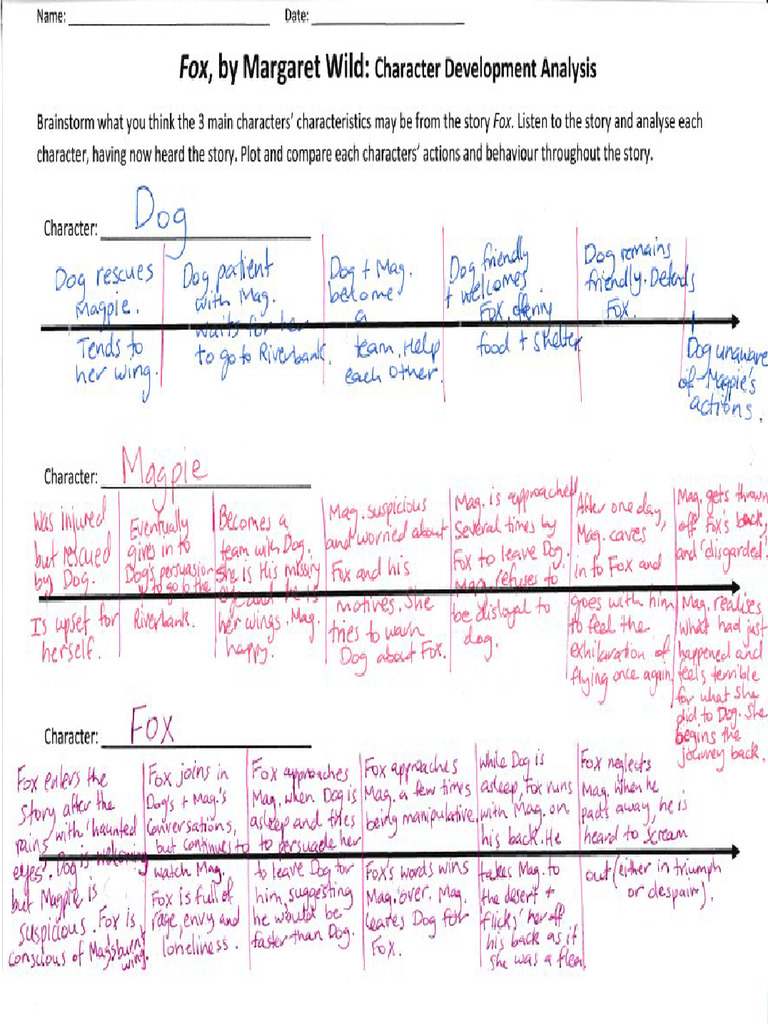 Name: ______________________ Date: ______________________
Fox, by Margaret Wild: Character Development Analysis
Brainstorm what you think the 3 main characters' characteristics may be from the story Fox. Listen to the story and analyse each
character, having now heard the story. Plot and compare each characters' actions and behaviour throughout the story.
Character: Dog
Dog rescues
Magpie.
Tends to
her wing.
Dog patient
with Mag.
waits for her
to go to Riverbank.
Dog + Mag.
become
a
team. Help
each other.
Dog friendly
+ welcomes
Fox, offering
food + shelter
Dog remains
friendly. Defends
Fox.
Dog unaware
of Magpie's
actions.
Character: Magpie
Was injured
but rescued
by Dog.
Is upset for
herself.
Eventually
gives in to
Dog's persuasion
to go to the
Riverbank.
Becomes a
team with Dog.
She is His missing
eye and he is
her wings. Mag.
happy.
Mag. suspicious
and worried about
Fox and his
motives. She
tries to warn
Dog about Fox.
Mag. is approached
several times by
Fox to leave Dog.
Mag. refuses to
be disloyal to
dog.
After one day,
Mag. caves
in to Fox and
goes with him
to feel the
exhilaration of
flying once again.
Mag. gets thrown
off Fox's back,
and 'disgarded'.
Mag. realises
what had just
happened and
feels terrible
for what she
did to Dog. She
begins the
journey back.
Character: Fox
Fox enters the
story after the
rains with 'haunted
eyes'. Dog is welcoming
but Magpie is
suspicious. Fox is
conscious of Mag's burnt
wing.
Fox joins in
Dog's + Mag.'s
conversations,
but continues to
watch Mag.
Fox is full of
rage, envy and
loneliness.
Fox approaches
Mag. when Dog is
asleep and tries
to persuade her
to leave Dog for
him, suggesting
he would be
faster than Dog.
Fox approaches
Mag. a few times
being manipulative.
Fox's words wins
Mag. over. Mag.
leaves Dog for
Fox.
While Dog is
asleep, Fox runs
with Mag. on
his back. He
takes Mag. to
the desert +
'flicks' her off
his back as if
she was a flea.
Fox neglects
Mag. When he
pads away, he is
heard to scream
out (either in triumph
or despair).